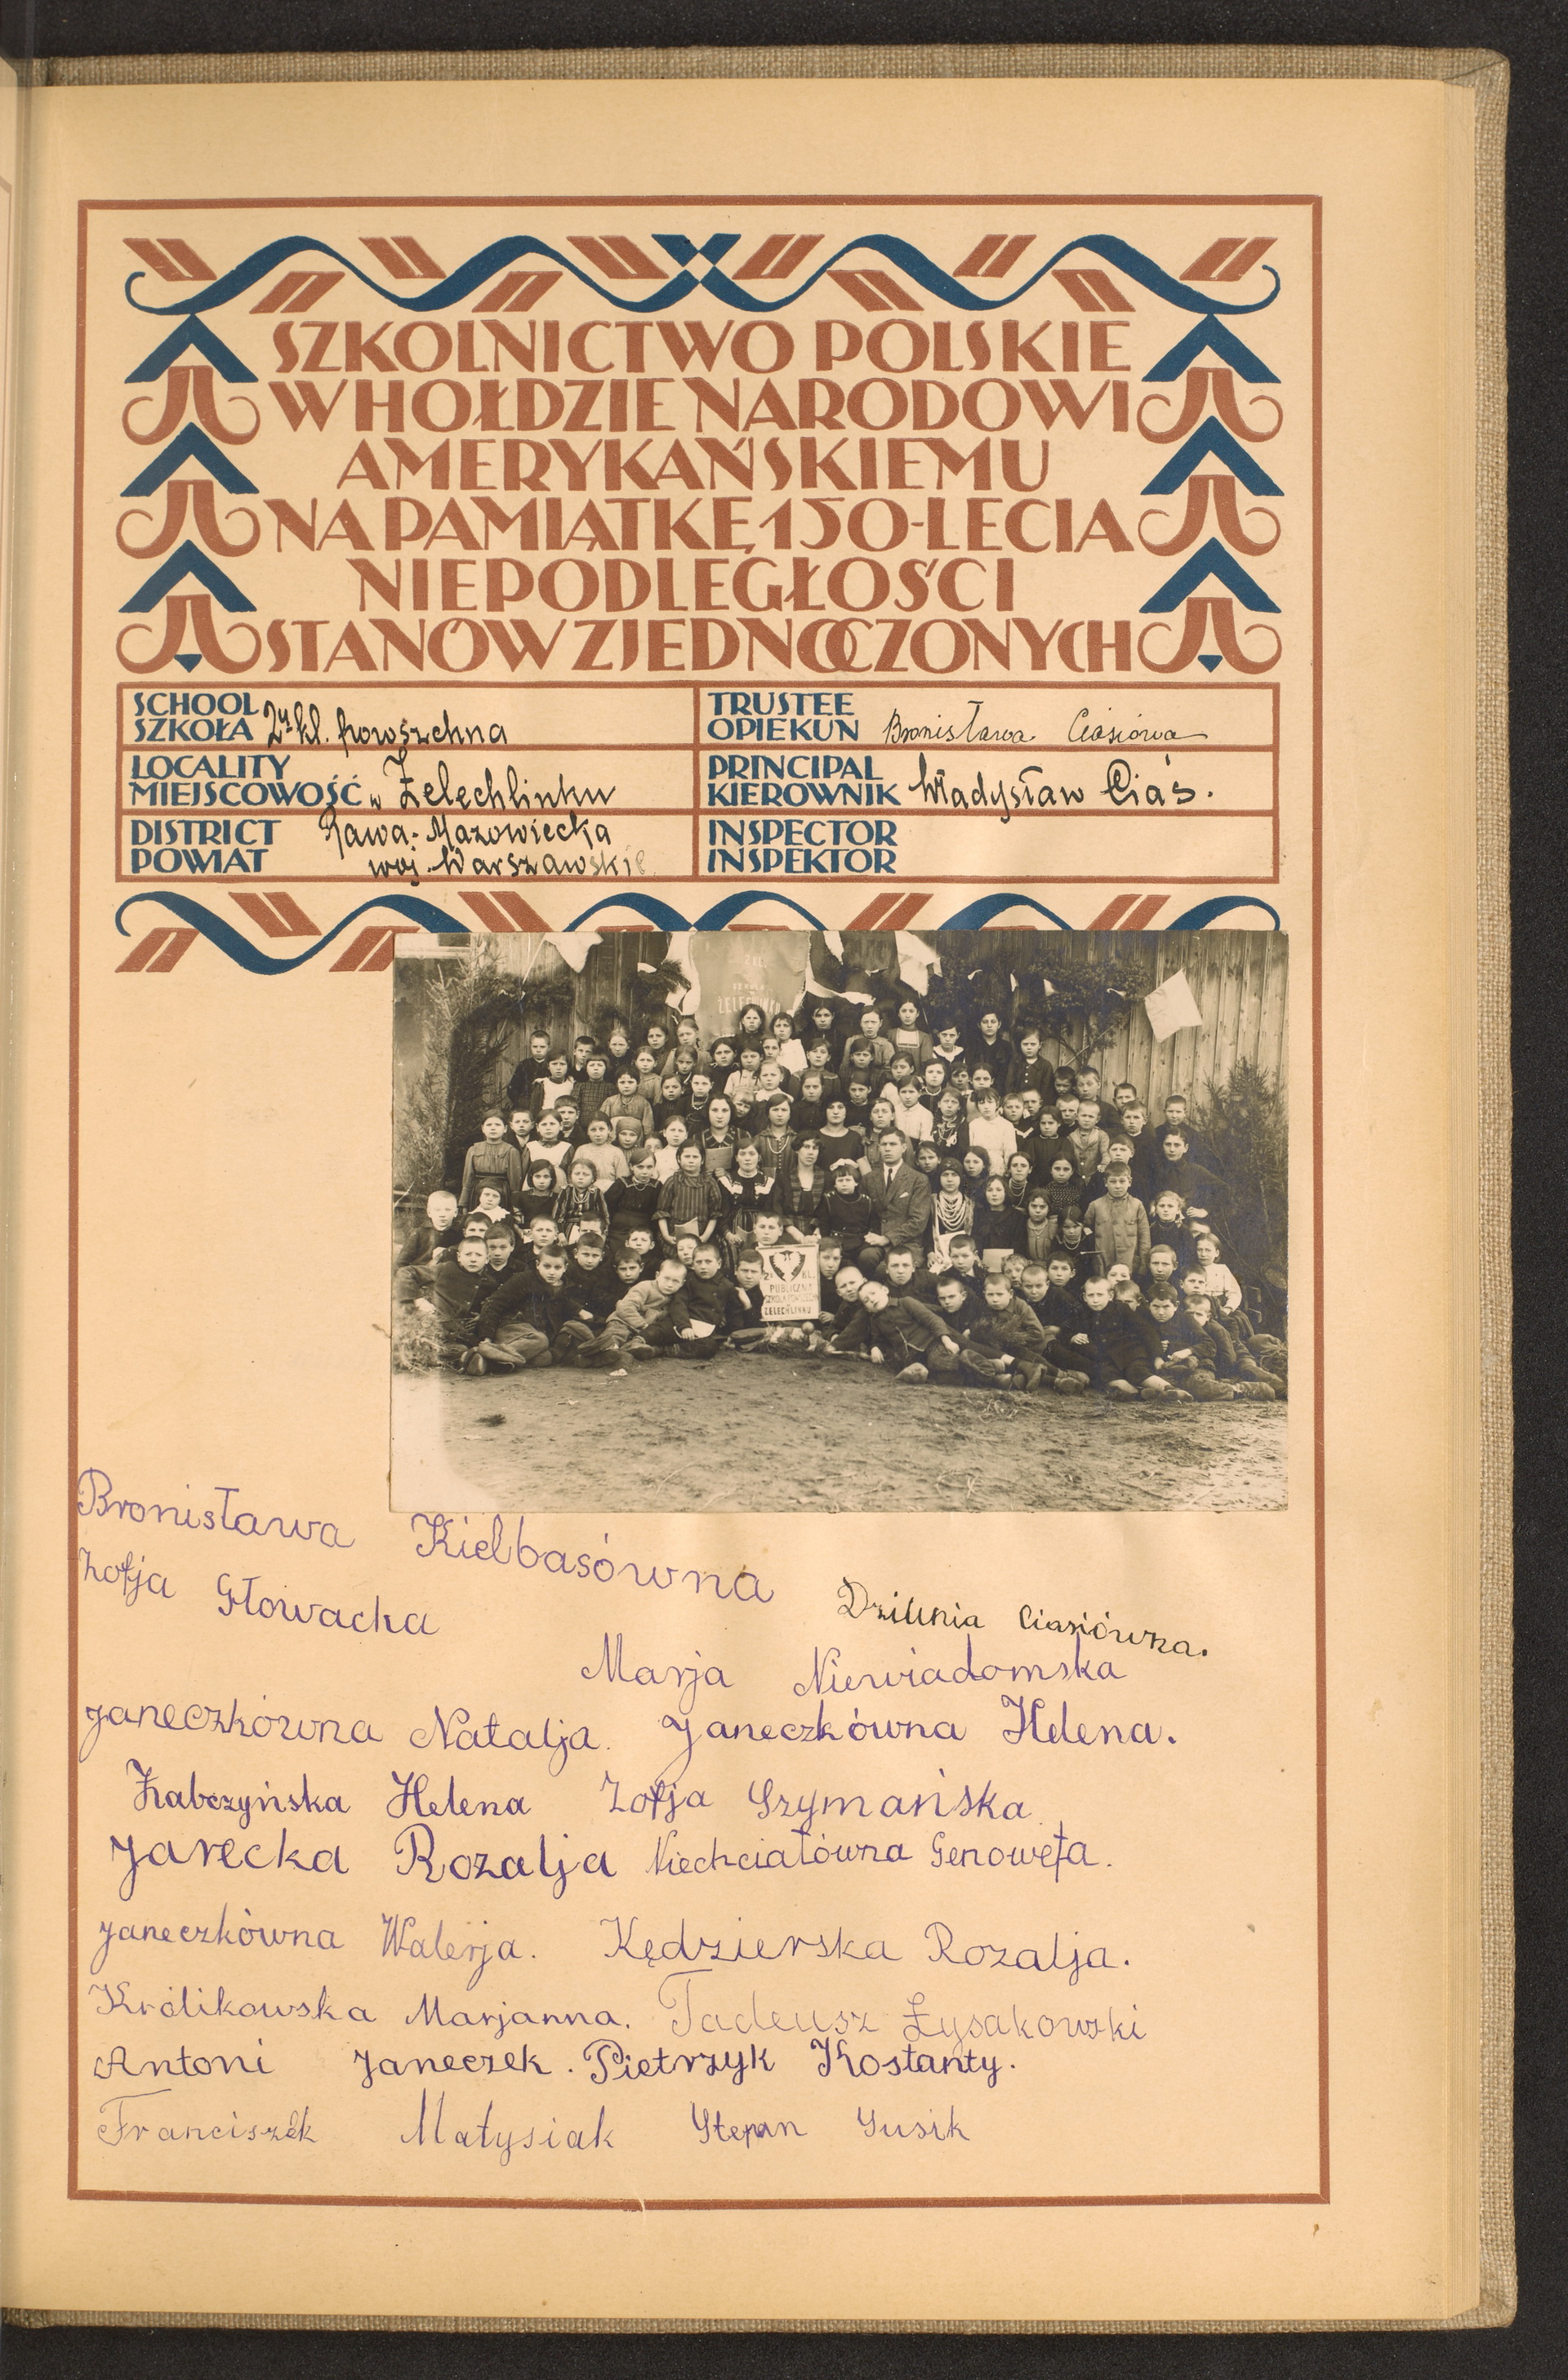 SZKOLNICTWO POLSKIE
W HOŁDZIE NARODOWI
AMERYKAŃSKIEMU
NA PAMIĄTKĘ 150-LECIA
NIEPODLEGŁOŚCI
STANÓW ZJEDNOCZONYCH
SCHOOL
SZKOŁA 2 kl. powszechna
TRUSTEE
OPIEKUN Bronisława Ciasiowa
LOCALITY
MIEJSCOWOŚĆ w Żelechlinku
PRINCIPAL
KIEROWNIK Władysław Ciaś.
DISTRICT Rawa-Mazowiecka
POWIAT woj. Warszawskie
INSPECTOR
INSPEKTOR
2 KL.
PUBLICZNA
SZKOŁA POWSZECHNA
ŻELECHLINKU
Bronisława Kiełbasówna
Zofja Głowacka
Ciasiówna.
Marja Niewiadomska
Janeczkówna Natalja. Janeczkówna Helena.
Żabczyńska Helena Zofja Szymańska
Jarecka Rozalja Niechciałówna Genowefa.
Janeczkówna Walerja. Kędzierska Rozalja.
Królikowska Marjanna. Tadeusz Łysakowski
Antoni Janeczek. Pietrzyk Kostanty.
Franciszek Matysiak Stefan Susik